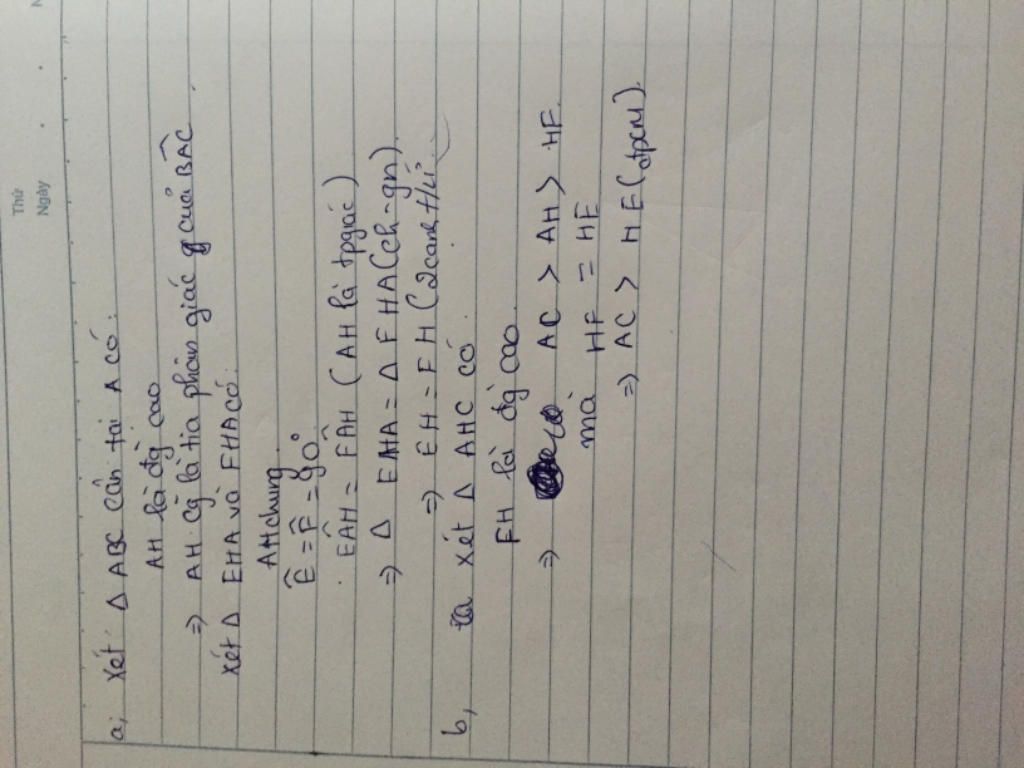 Thứ
Ngày
a, xét Δ ABC cân tại A có:
AH là đg cao
=> AH cg là tia phân giác của BÂC
xét Δ EHA và FHA có:
AH chung
Ê = F̂ = 90°
EÂH = FÂH (AH là tpgiác)
=> Δ EHA = Δ FHA (ch-gn).
=> EH = FH (2 cạnh t/ứ
b, xét Δ AHC có
FH là đg cao.
=> AC > AH > HF.
mà HF = HE
=> AC > HE (đpcm).